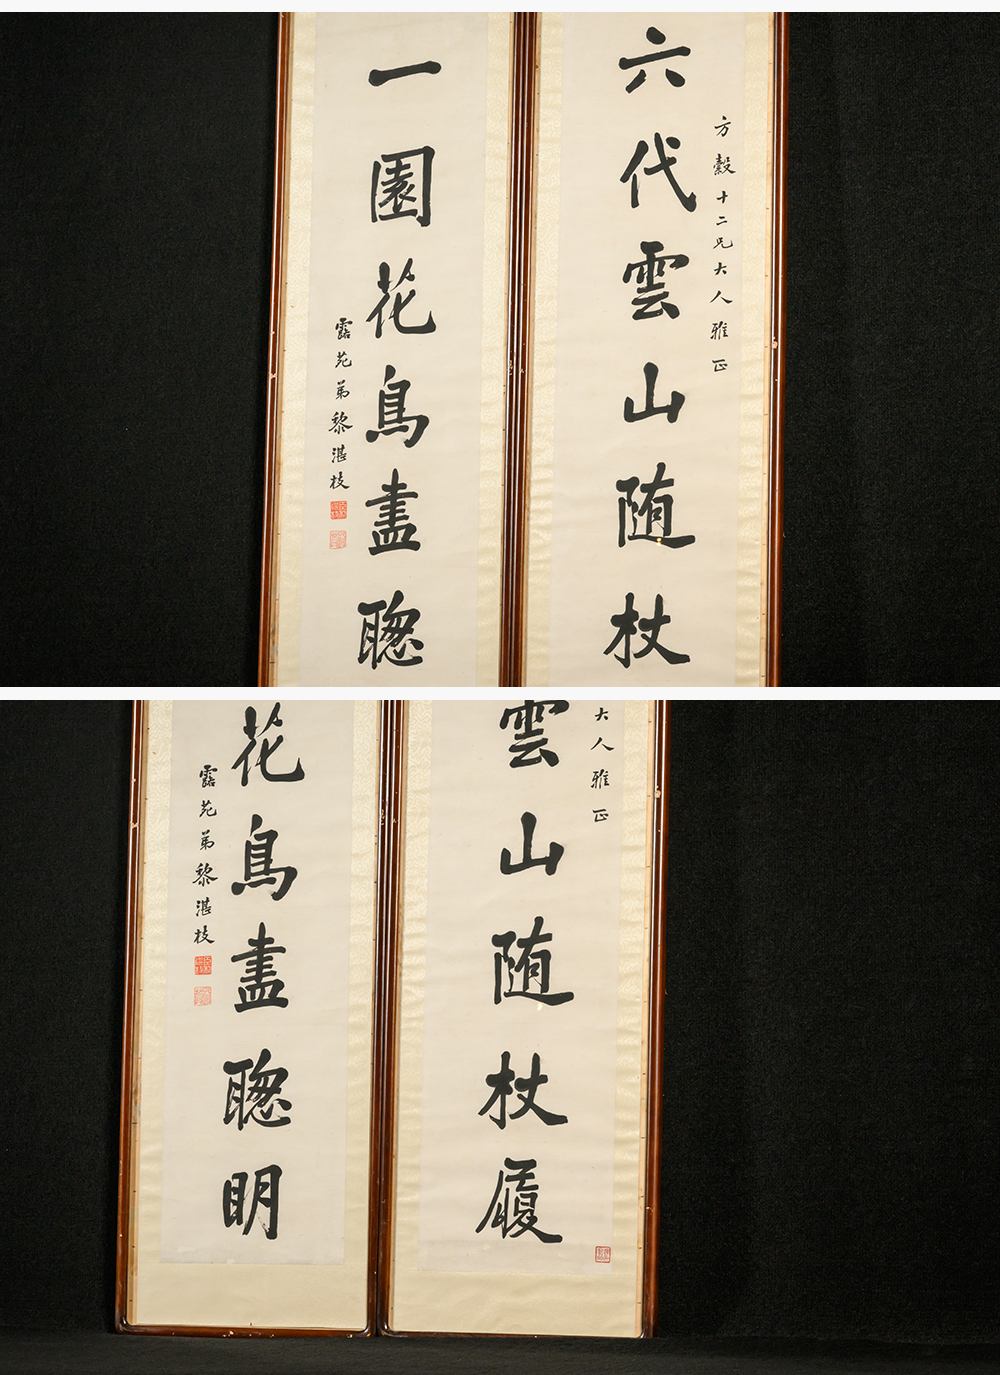 方縠十二兄大人雅正
六代雲山随杖
一園花鳥盡聰
露苑弟黎湛枝
大人雅正
雲山随杖履
花鳥盡聰明
露苑弟黎湛枝